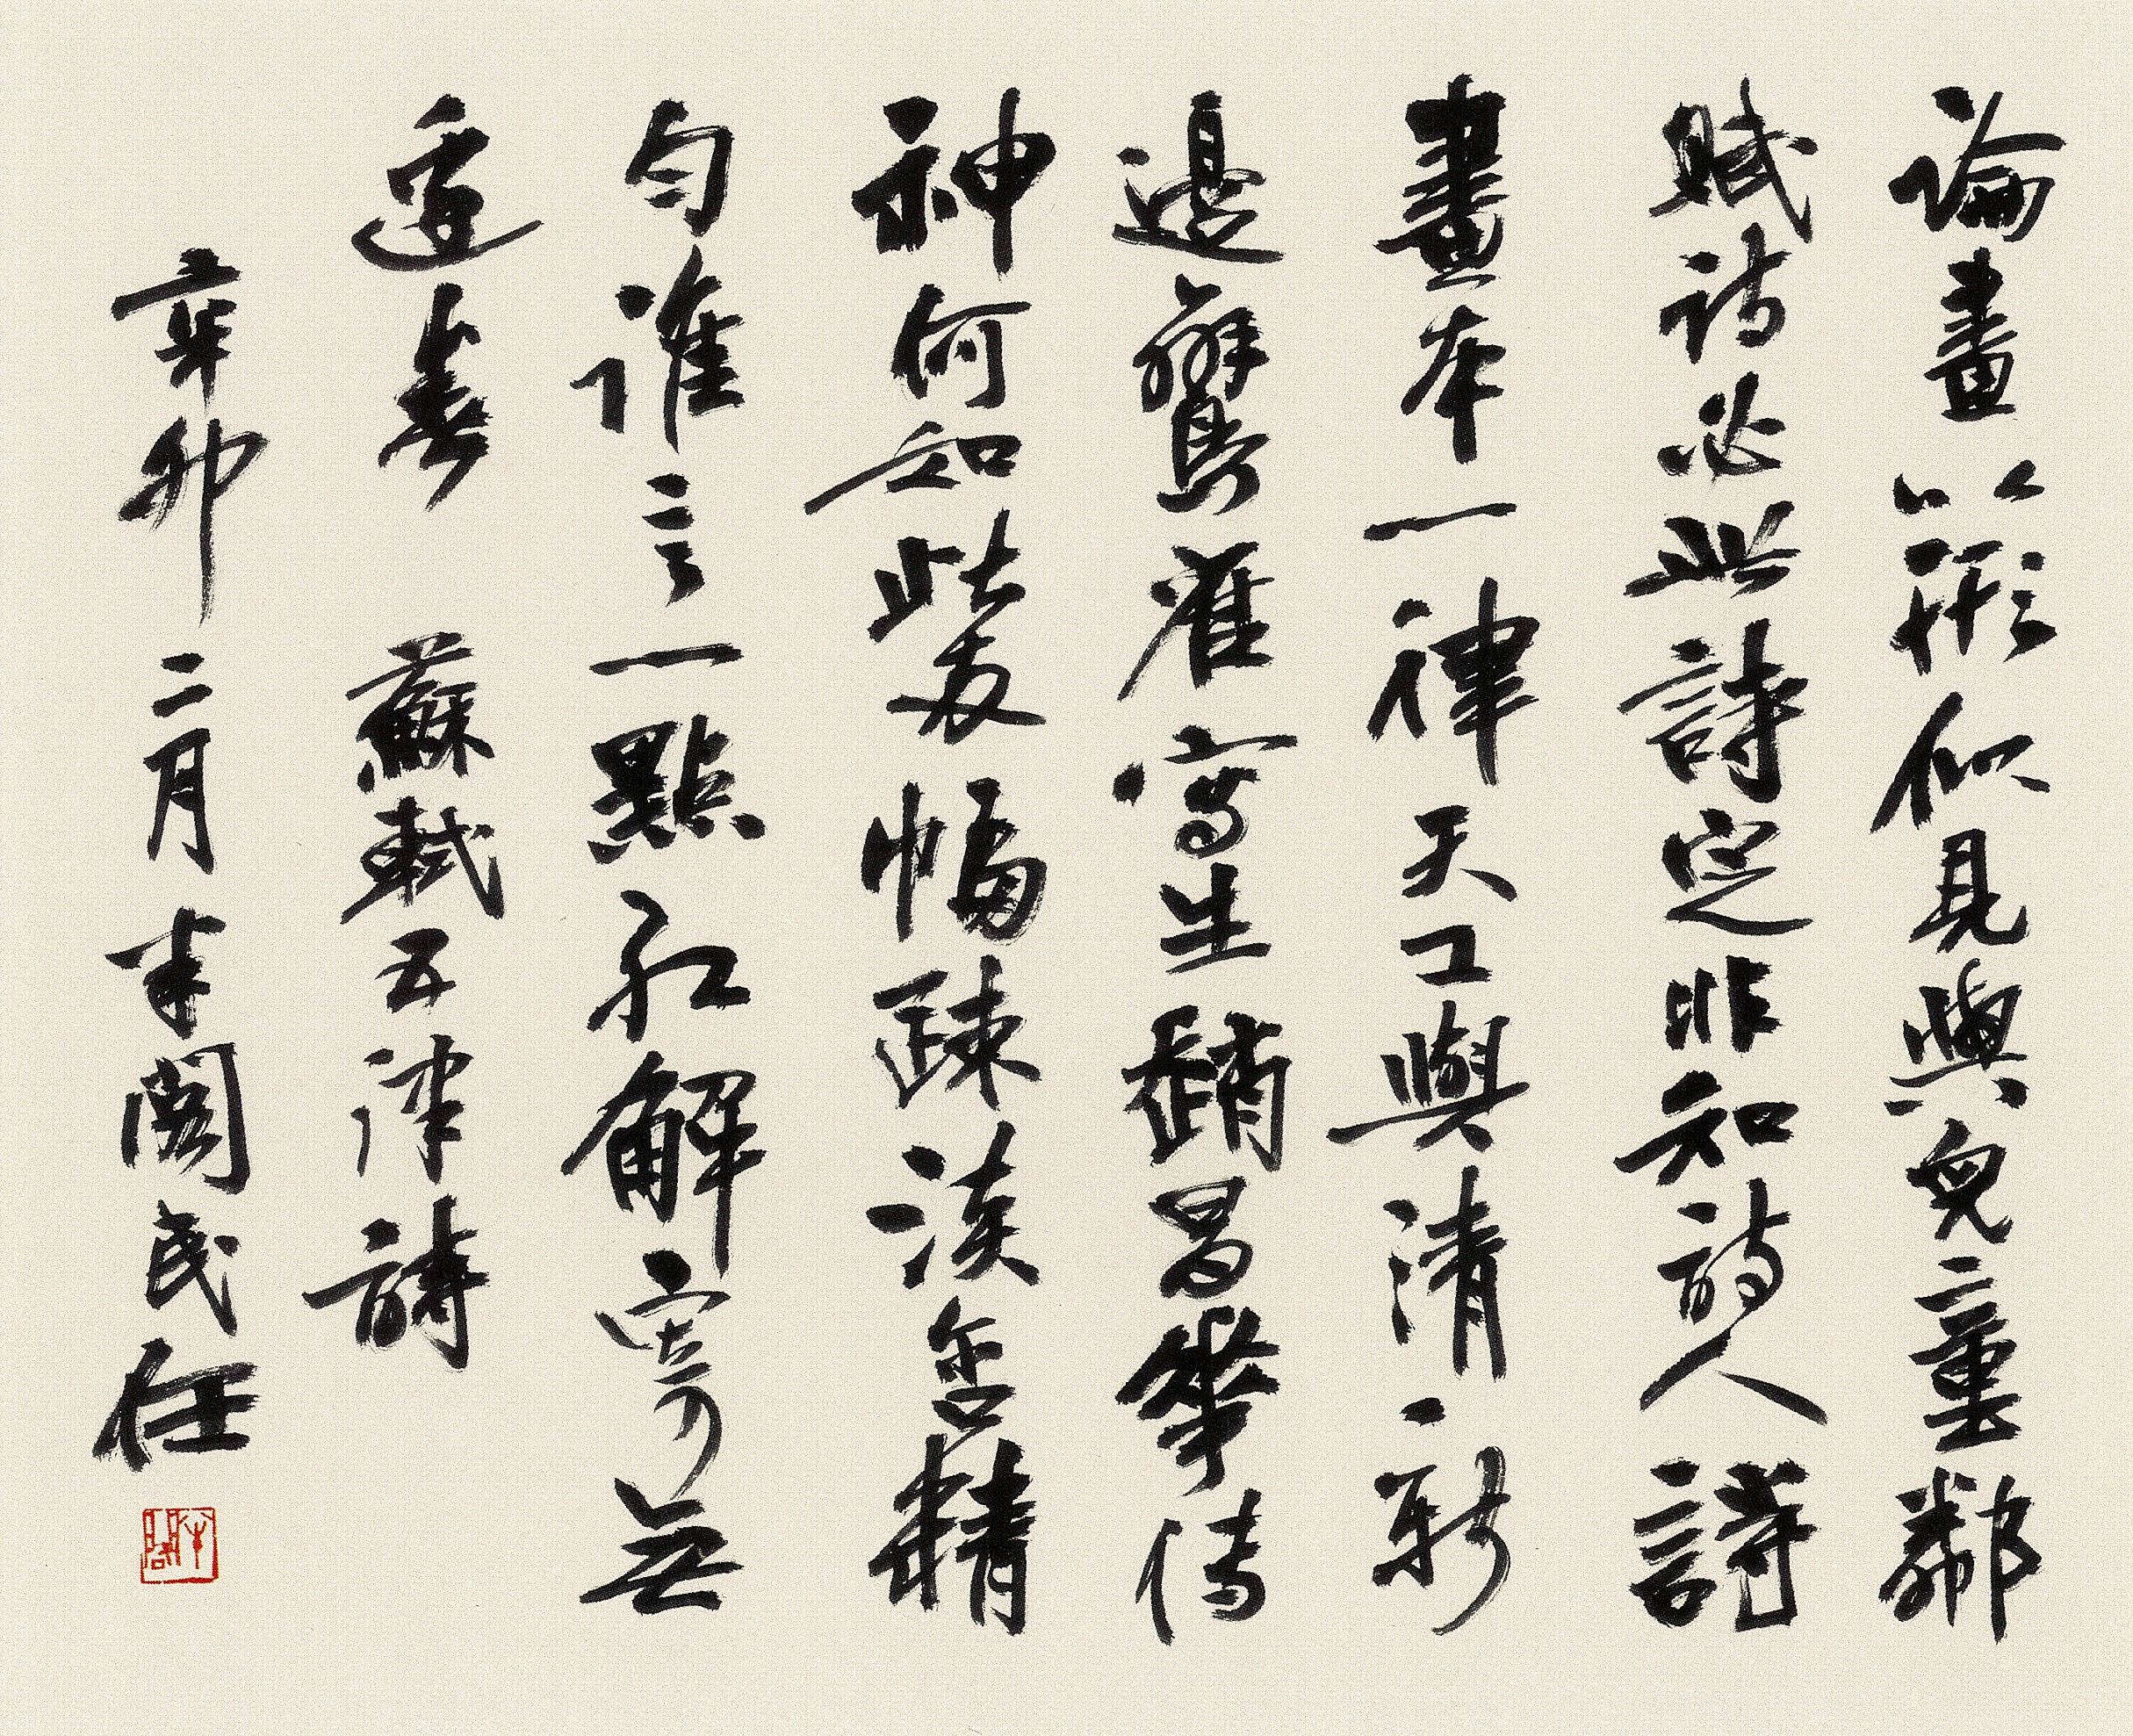 論畫以形似見與兒童鄰
賦詩必此詩定非知詩人詩
畫本一律天工與清新
邊鸞雀寫生趙昌華傳
神何如此兩幅疎淡含精
勻誰言一點紅解寄無
邊春 蘇軾五律詩
辛卯二月半閣民任
半閣